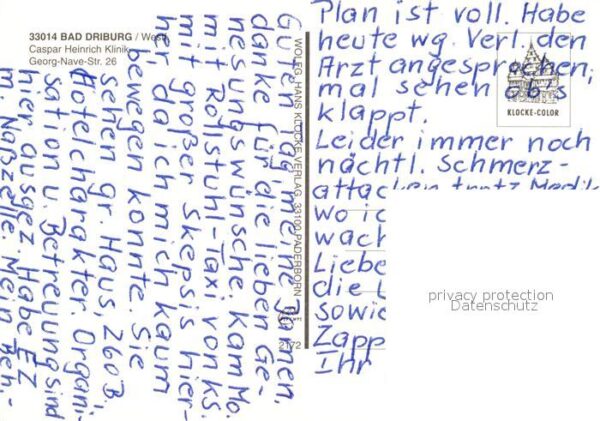 33014 BAD DRIBURG / Westf.
Caspar Heinrich Klinik
Georg-Nave-Str. 26
Guten Tag meine Damen,
danke für die lieben Ge-
nesungswünsche. Kam Mo.
mit Rollstuhl-Taxi von KS.
mit großer Skepsis hier-
her, da ich mich kaum
bewegen konnte. Sie
sehen gr. Haus, 260 B.,
Hotelcharakter. Organi-
sation u. Betreuung sind
hier ausgez. Habe EZ
m. Naßzelle. Mein Beh.-
Plan ist voll. Habe
heute wg. Verl. den
Arzt angesprochen,
mal sehen ob's
klappt.
Leider immer noch
nächtl. Schmerz-
attacken trotz Medik
wo ic
wach
Liebe
die
sowie
Zapp
Ihr
WOLFG. HANS KLOCKE VERLAG, 33100 PADERBORN
2172
KLOCKE-COLOR
privacy protection
Datenschutz